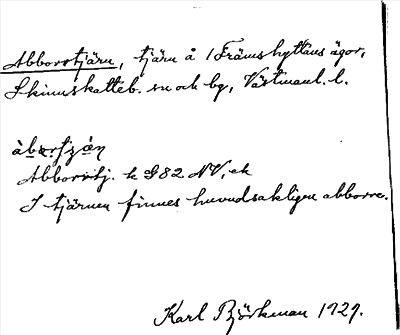 Abborrtjärn, tjärn å 1 Främshyttans ägor,
Skinnskatteb. sn och bg, Västmanl. l.
àbərtjæ̀n
Abborrtj. k G82 NV, ek
I tjärnen finnes huvudsakligen abborre.
Karl Björkman 1929.